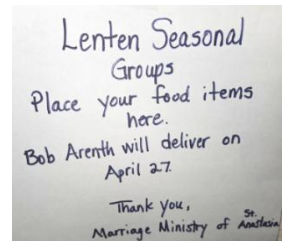 Lenten Seasonal
Groups
Place your food items
here.
Bob Arenth will deliver on
April 27.
Thank you,
Marriage Ministry of St. Anastasia